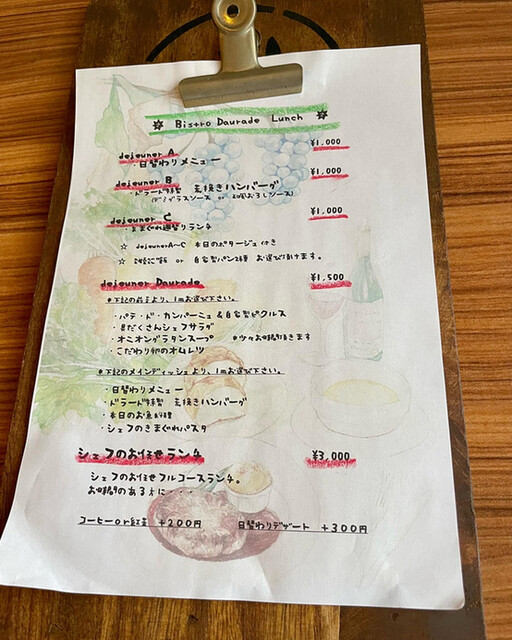 ✡ Bistro Daurade Lunch ✡
dejeuner A ¥1,000
・日替わりメニュー
dejeuner B ¥1,000
・ドラード特製 荒挽きハンバーグ
(デミグラスソース or 和風おろしソース)
dejeuner C ¥1,000
・きまぐれ週替りランチ
☆ dejeunerA~C 本日のポタージュ付き
☆ ご飯 or 自家製パン2種 お選び頂けます。
dejeuner Daurade ¥1,500
*下記の前菜より、1品お選び下さい。
・パテ・ド・カンパーニュ&自家製ピクルス
・具だくさんシェフサラダ
・オニオングラタンスープ *少々お時間頂きます
・こだわり卵のオムレツ
*下記のメインディッシュより、1品お選び下さい。
・日替わりメニュー
・ドラード特製 荒挽きハンバーグ
・本日のお魚料理
・シェフのきまぐれパスタ
シェフのお任せランチ ¥3,000
シェフのお任せフルコースランチ。
お時間のある方に・・・
コーヒーor紅茶 +200円 日替わりデザート +300円